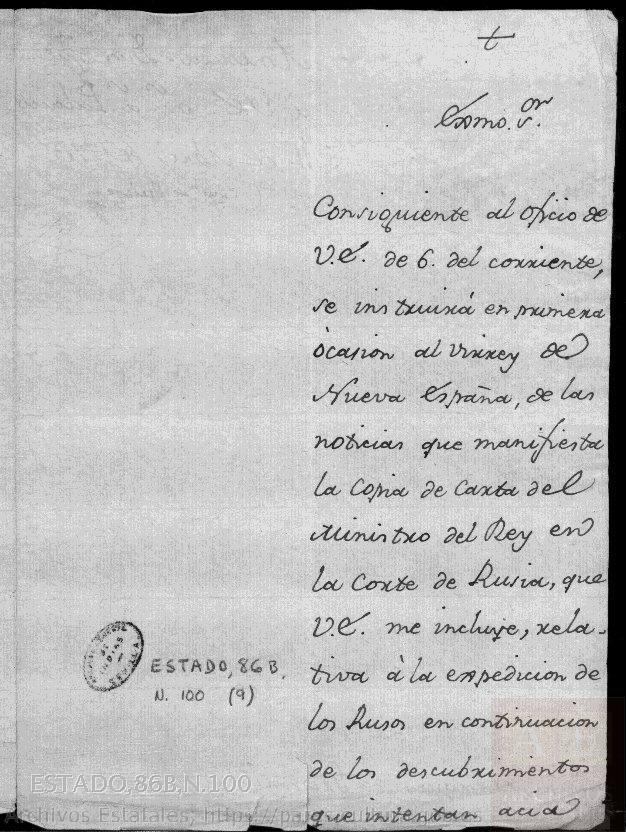 t
Exmo. Sor.
Consiquiente al oficio de
V.E. de 6. del corriente,
se instruirá en primera
òcasion al virrey de
Nueva España, de las
noticias que manifiesta
la Copia de Carta del
Ministro del Rey en
la Corte de Rusia, que
V.E. me incluye, rela-
tiva à la expedicion de
los Rusos en continuacion
de los descubrimientos
que intentan acia
INDIAS
SEVILLA
ESTADO, 86 B.
N. 100 (9)
ESTADO,86B,N.100
Archivos Estatales, https://